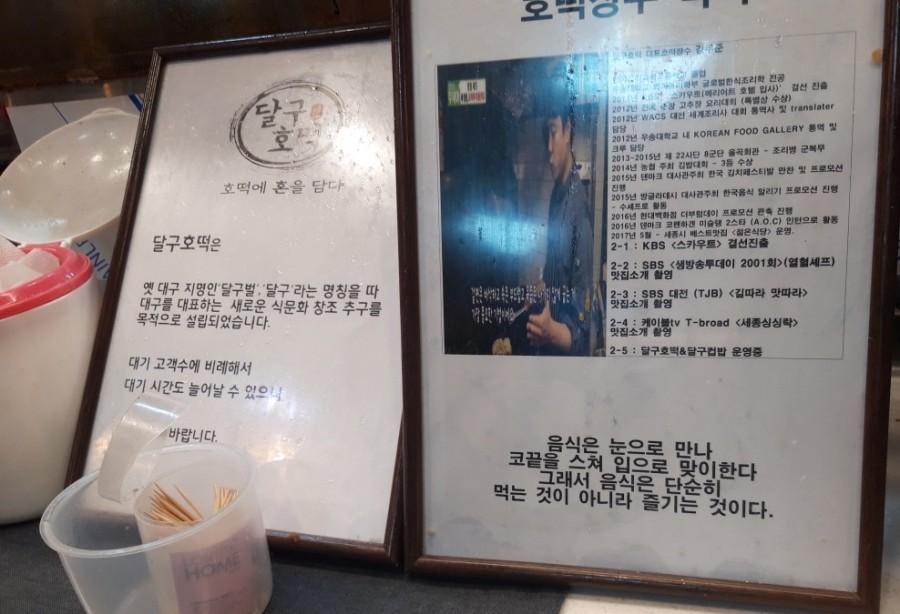 달구
호떡
호떡에 혼을 담다
달구호떡은
옛 대구 지명인'달구벌', '달구'라는 명칭을 따
대구를 대표하는 새로운 식문화 창조 추구를
목적으로 설립되었습니다.
대기 고객수에 비례해서
대기 시간도 늘어날 수 있으니
바랍니다.
HOME
호떡장수
결선 진출
고추장 요리대회 (특별상 수상)
2012년 WACS 대전 세계조리사 대회 통역사 및 translater
담당
2012년 우송대학교 내 KOREAN FOOD GALLERY 통역 및
크루 담당
2013-2015년 제 22사단 8군단 율곡회관 - 조리병 군복무
2014년 농협 주최 김밥대회 - 3등 수상
2015년 덴마크 대사관주최 한국 김치페스티발 만찬 및 프로모션
진행
2015년 방글라데시 대사관주최 한국음식 알리기 프로모션 진행
- 수셰프로 활동
2016년 현대백화점 더부텀데이 프로모션 판촉 진행
2016년 덴마크 코펜하겐 미슐랭 2스타 (A.O.C) 인턴으로 활동
2017년 5월 - 세종시 베스트맛집 <젊은식당> 운영.
2-1 : KBS <스카우트> 결선진출
2-2 : SBS <생방송투데이 2001회>(열혈셰프)
맛집소개 촬영
2-3 : SBS 대전 (TJB) <길따라 맛따라>
맛집소개 촬영
2-4 : 케이블tv T-broad <세종싱싱락>
맛집소개 촬영
2-5 : 달구호떡&달구컵밥 운영중
음식은 눈으로 만나
코끝을 스쳐 입으로 맞이한다
그래서 음식은 단순히
먹는 것이 아니라 즐기는 것이다.